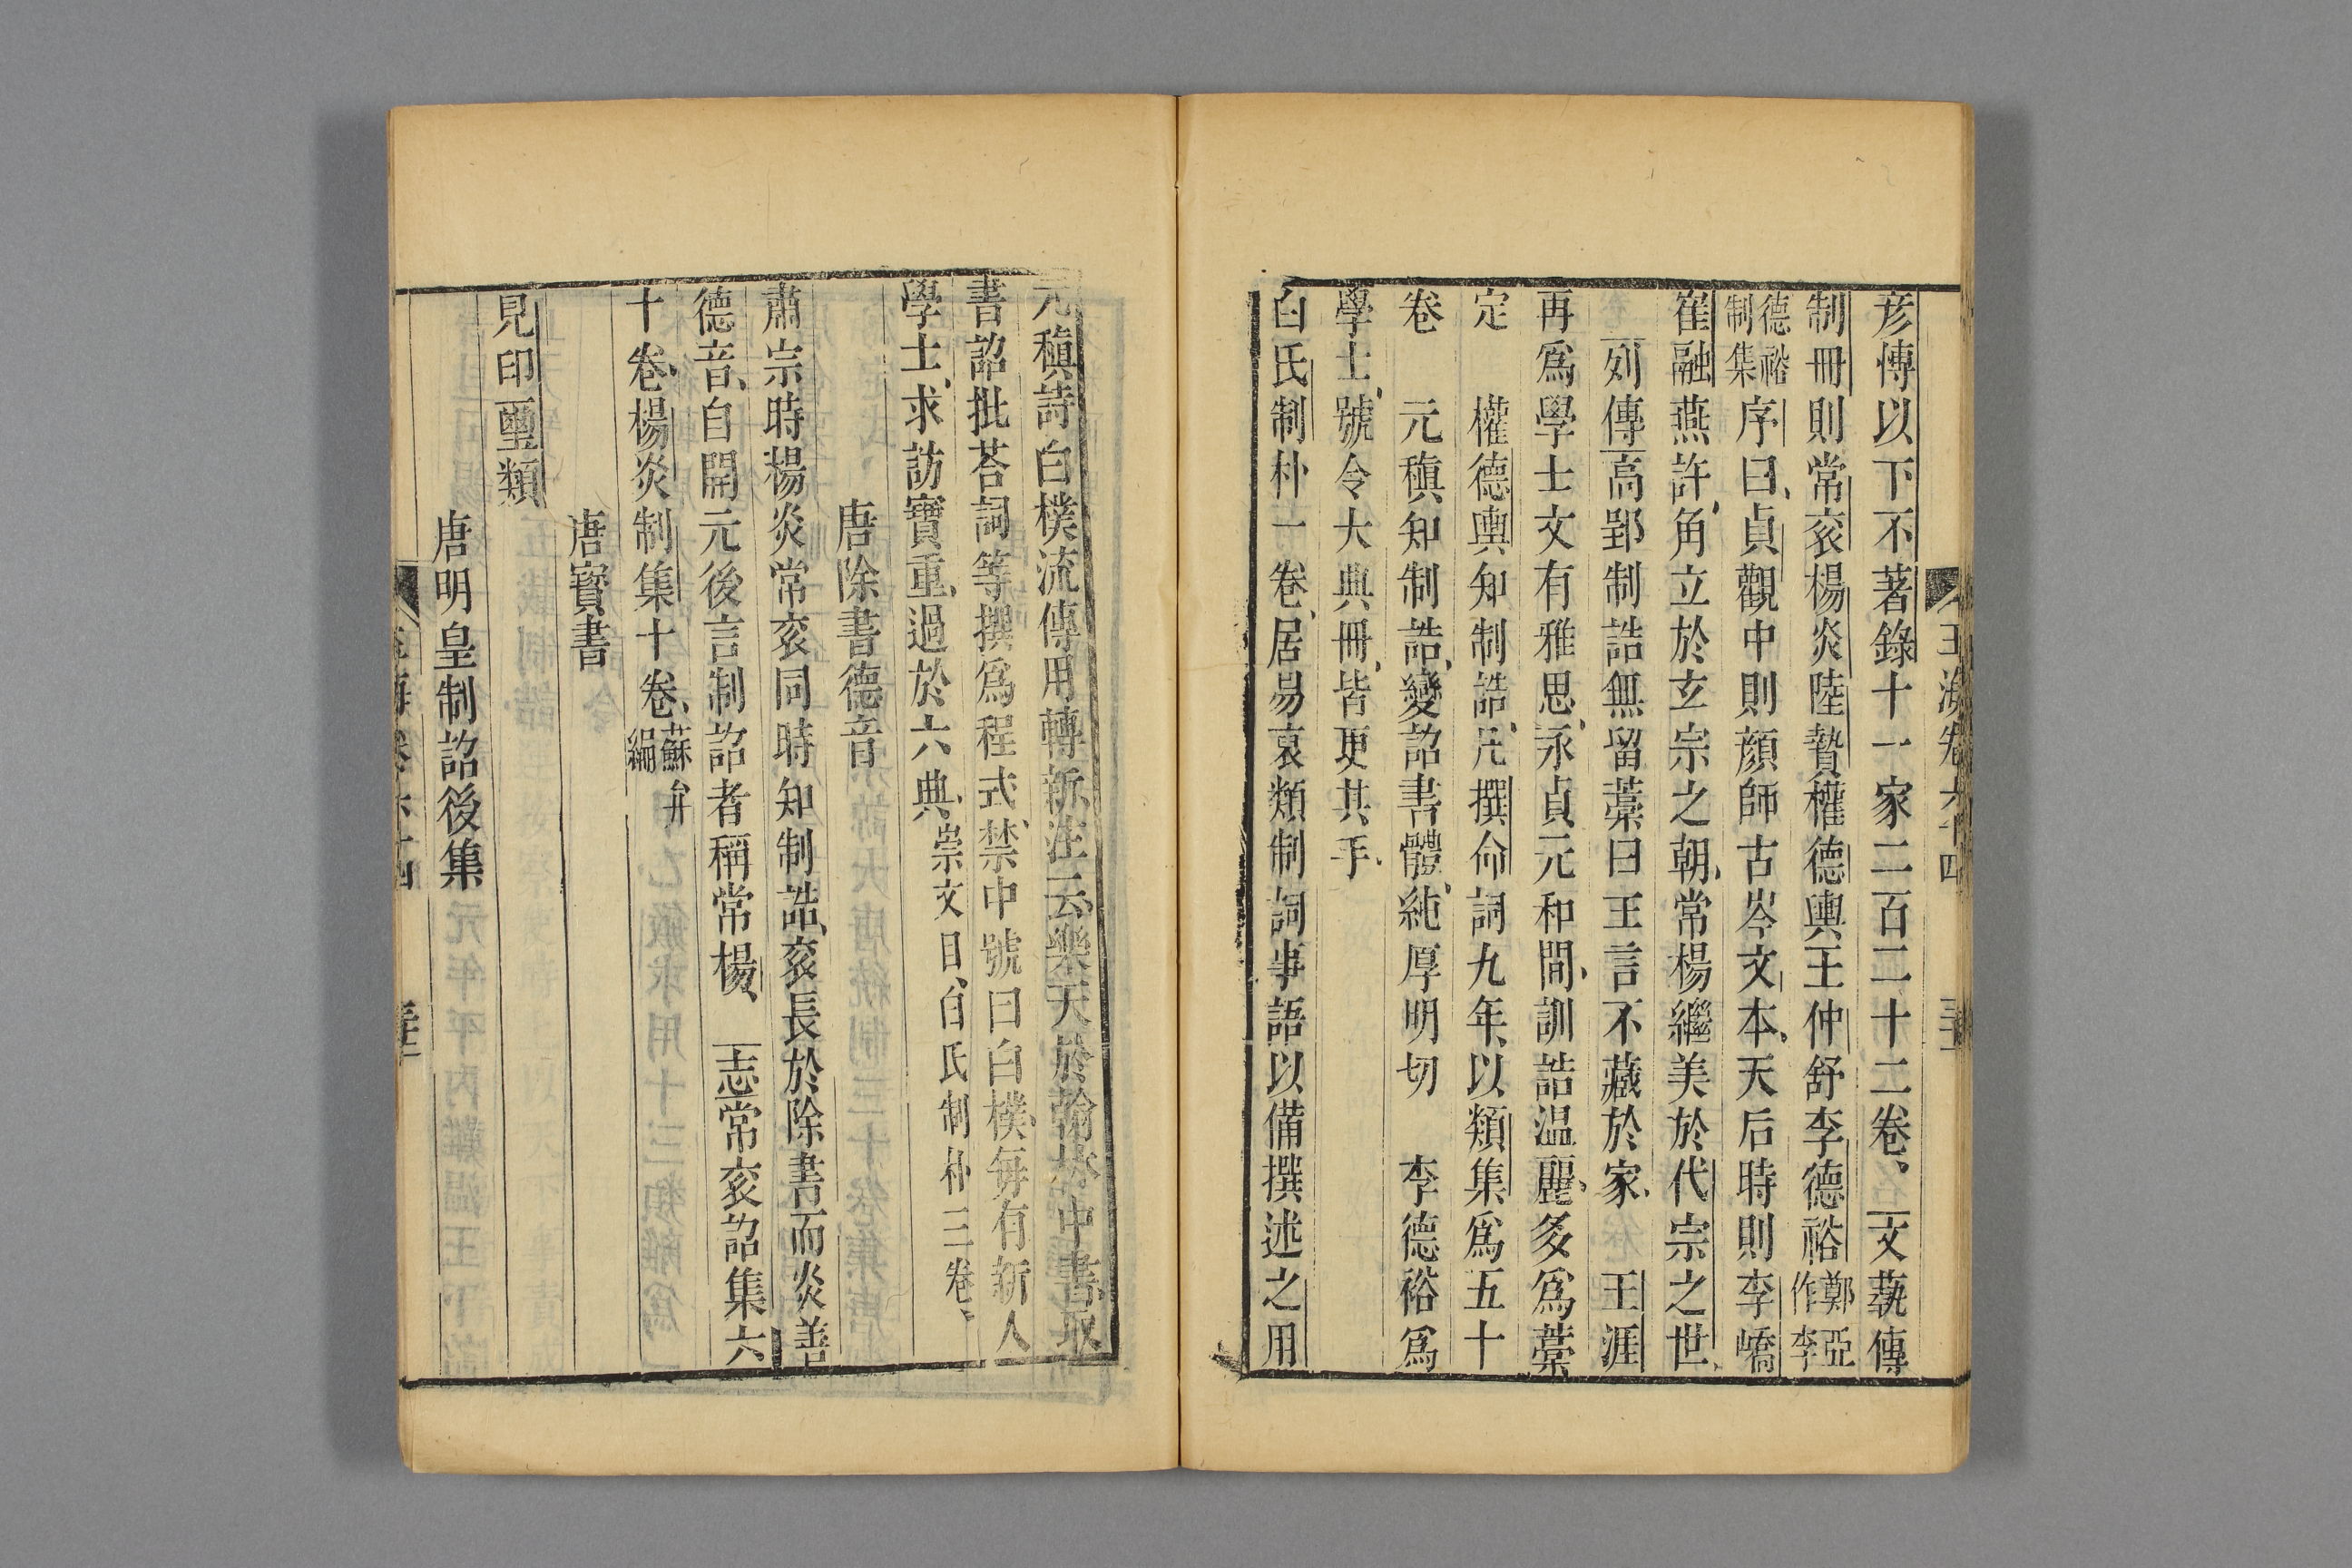 玉海卷六十四
彦傳以下不著錄十一家二百二十二卷、文蓺傳
制冊則常衮楊炎陸贄權德輿王仲舒李德裕鄭亞作李
德裕制集序曰、貞觀中則顏師古岑文本、天后時則李嶠
崔融燕許、角立於玄宗之朝、常楊繼美於代宗之世、
列傳高郢制誥無留藁曰王言不藏於家、王涯
再爲學士文有雅思、永貞元和間、訓誥温麗、多爲藁
定 權德輿知制誥、凡撰命詞九年、以類集爲五十
卷 元稹知制誥、變詔書體、純厚明切 李德裕爲
學士、號令大典冊、皆更其手、
白氏制朴一卷、居易裒類制詞事語以備撰述之用
元稹詩白樸流傳用轉新注云、樂天於翰林中書取
書詔批荅詞等撰爲程式、禁中號曰白樸、每有新人
學士、求訪寶重、過於六典、崇文目、白氏制朴三卷、
唐除書德音
肅宗時楊炎常衮同時知制誥、衮長於除書而炎善
德音、自開元後言制詔者稱常楊、 志常衮詔集六
十卷、楊炎制集十卷、蘇弁編
唐寶書
見印璽類
唐明皇制詔後集